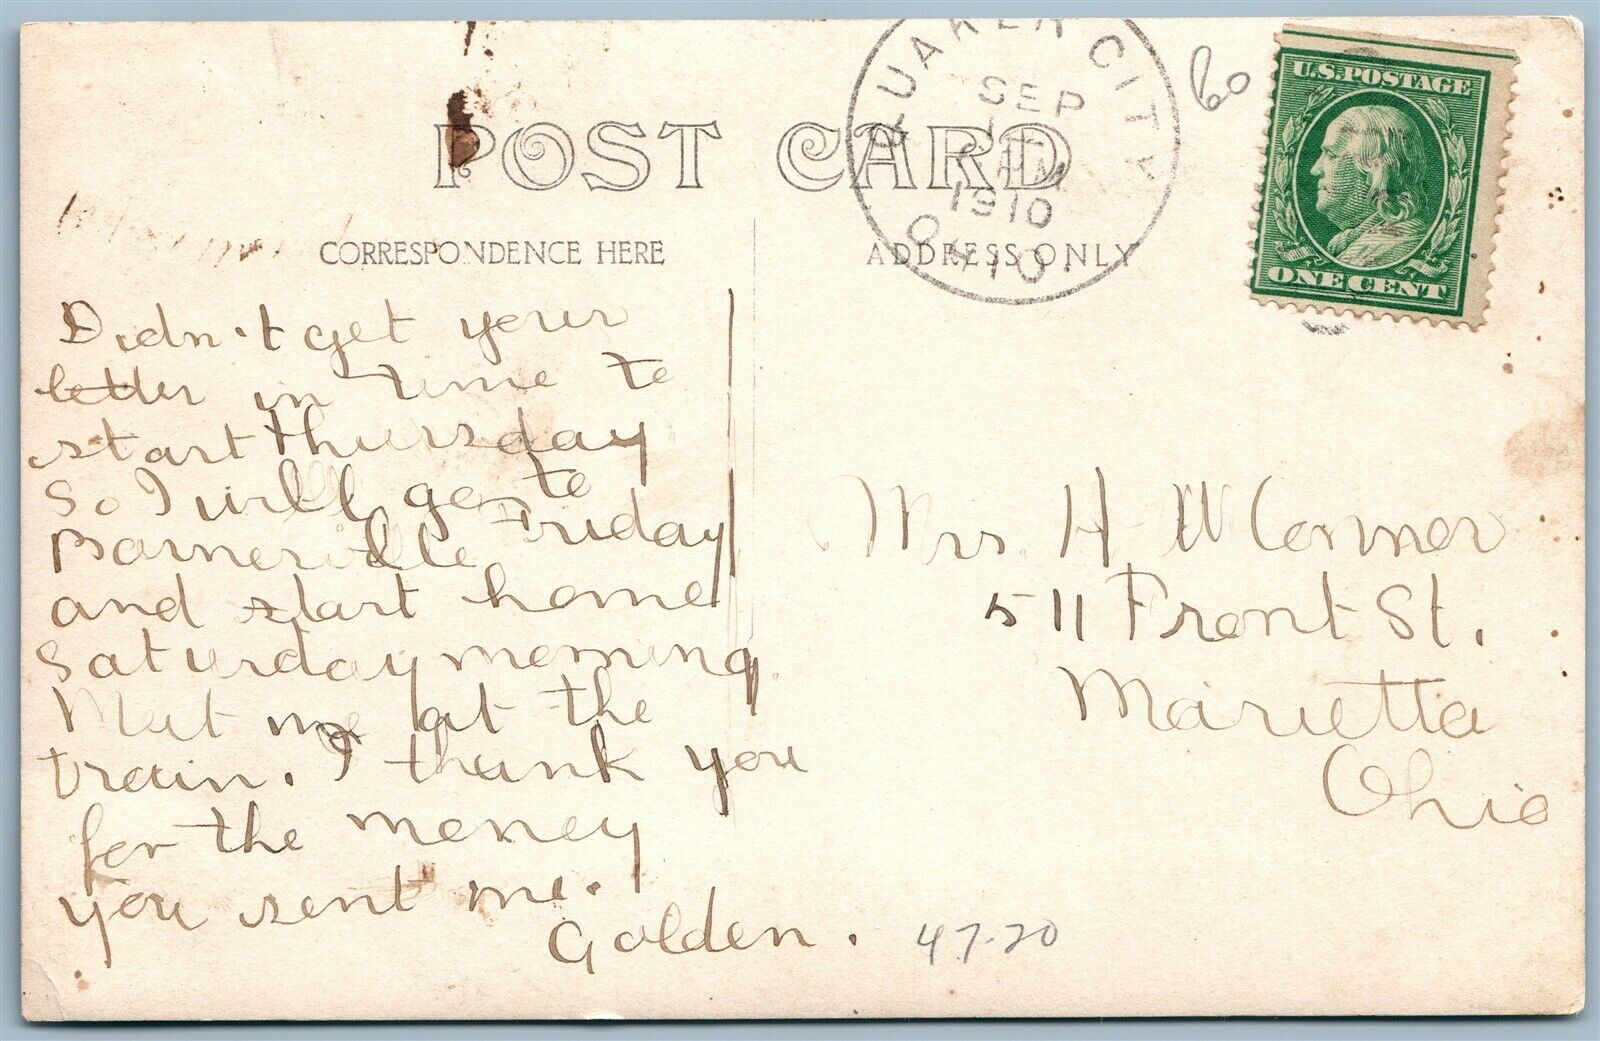 POST CARD
CORRESPONDENCE HERE
ADDRESS ONLY
QUAKER CITY
SEP
1
AM
1910
OHIO
60
U.S. POSTAGE
ONE CENT
Didn't get your
letter in time to
start thursday
So I will go to
Barnesville Friday
and start home
Saturday morning
Meet me at the
train. I thank you
for the money
you sent me.
Golden.
Mrs. H W Connor
511 Front St.
Marietta
Ohio
47-20